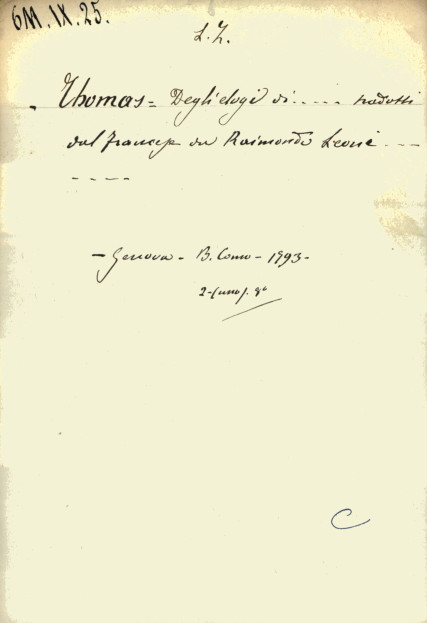 6M.IX.25.
L. Z.
Thomas = Degli elogi di ..... tradotti
dal francese da Raimondo Leoni ...
- - - -
- Genova - B. Como - 1793 -
8°
C